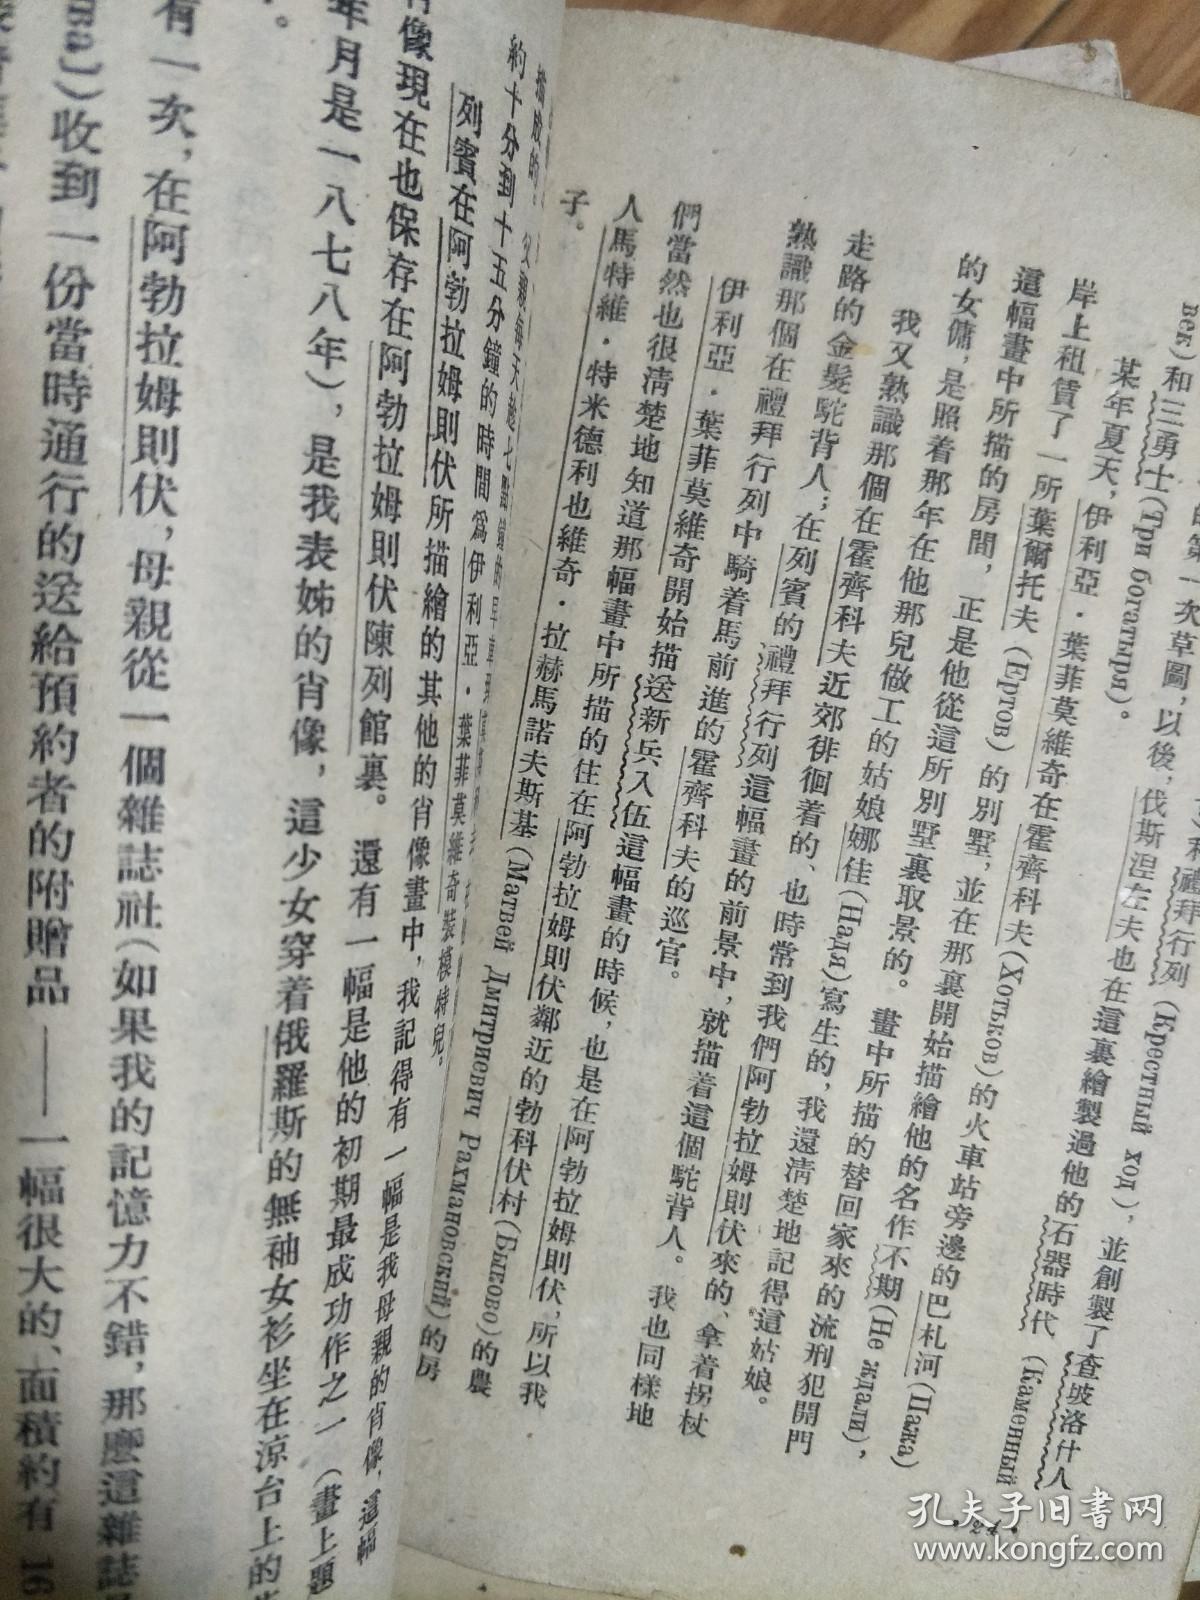 的第一次草圖，以後，伐斯涅左夫也在這裏繪製過他的石器時代（Каменный
век）和三勇士（Три богатыря）。
某年夏天，伊利亞·葉菲莫維奇在霍齊科夫（Хотьков）的火車站旁邊的巴札河（Пажа）
岸上租賃了一所葉爾托夫（Ергов）的別墅，並在那裏開始描繪他的名作不期（Не ждали），
這幅畫中所描的房間，正是他從這所別墅裏取景的。畫中所描的替回家來的流刑犯開門
的女傭，是照着那年在他那兒做工的姑娘娜佳（Надя）寫生的，我還清楚地記得這姑娘。
我又熟識那個在霍齊科夫近郊徘徊着的、也時常到我們阿勃拉姆則伏來的、拿着拐杖
走路的金髮駝背人；在列賓的禮拜行列這幅畫的前景中，就描着這個駝背人。我也同樣地
熟識那個在禮拜行列中騎着馬前進的霍齊科夫的巡官。
伊利亞·葉菲莫維奇開始描送新兵入伍這幅畫的時候，也是在阿勃拉姆則伏，所以我
們當然也很清楚地知道那幅畫中所描的住在阿勃拉姆則伏鄰近的勃科伏村（Быково）的農
人馬特維·特米德利也維奇·拉赫馬諾夫斯基（Матвей Дмитриевич Рахмановский）的房
子。
·24·
描成的。父親每天趁七點鐘的早車到
約十分到十五分鐘的時間爲伊利亞·葉菲莫維奇裝模特兒。
列賓在阿勃拉姆則伏所描繪的其他的肖像畫中，我記得有一幅是我母親的肖像，這幅
肖像現在也保存在阿勃拉姆則伏陳列館裏。還有一幅是他的初期最成功作之一（畫上題
年月是一八七八年），是我表姊的肖像，這少女穿着俄羅斯的無袖女衫坐在涼台上的
有一次，在阿勃拉姆則伏，母親從一個雜誌社（如果我的記憶力不錯，那麼這雜誌
ва〕）收到一份當時通行的送給預約者的附贈品——一幅很大的、面積約有 16
孔夫子旧书网
www.kongfz.com